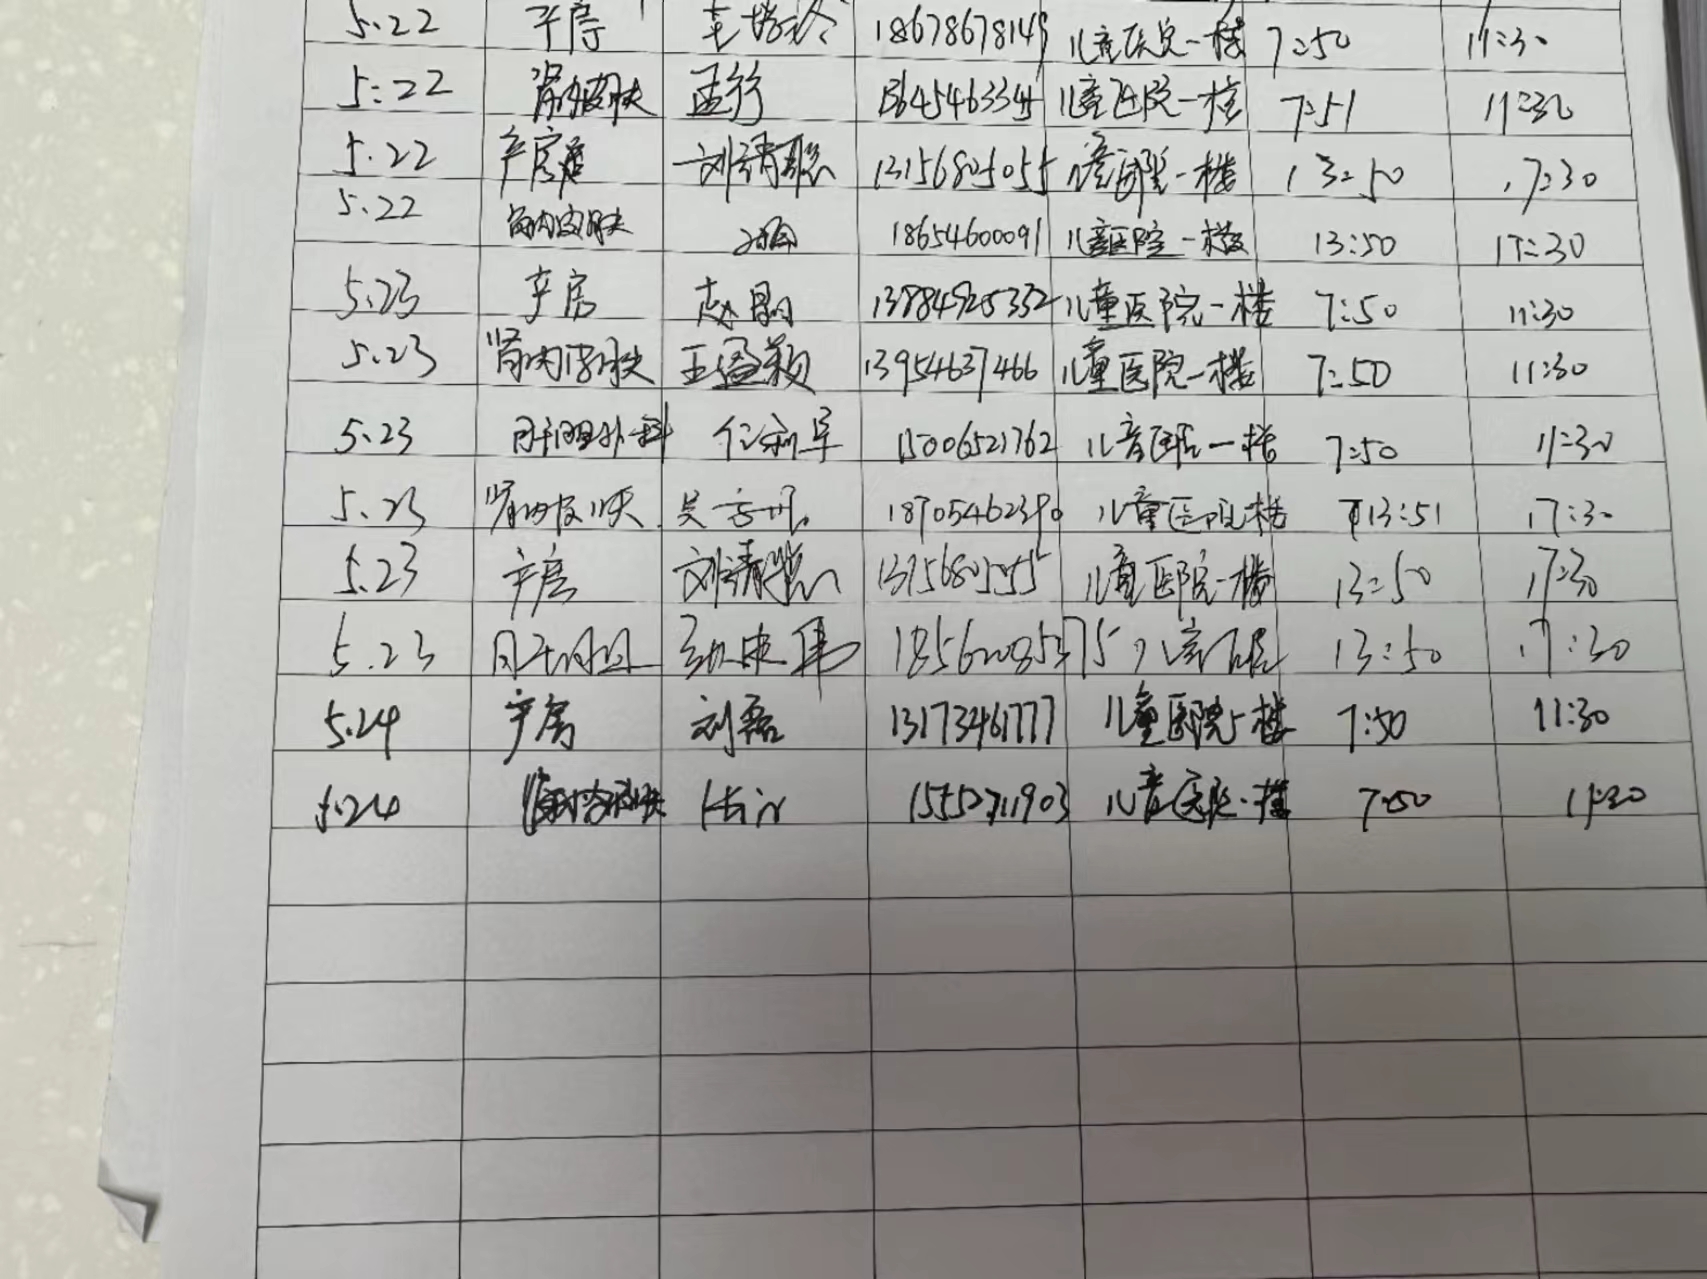 5.22 产房 18678678149 儿童医院一楼 7:50 11:30
5:22 肾内皮肤 孟行 儿童医院一楼 7:51 11:30
5.22 产房 刘清聪 13156805055 儿童医院一楼 13:50 17:30
5.22 肾内皮肤 18654600091 儿童医院一楼 13:50 17:30
5.23 产房 赵明 13884925332 儿童医院一楼 7:50 11:30
5.23 肾内皮肤 王盈颖 13954637466 儿童医院一楼 7:50 11:30
5.23 肝胆外科 任 军 15006521762 儿童医院一楼 7:50 11:30
5.23 肾内皮肤 吴 18705462390 儿童医院一楼 13:51 17:30
5.23 产房 刘清聪 儿童医院一楼 13:50 17:30
5.23 肝胆 儿童医院 13:50 17:30
5.24 产房 刘磊 13173461777 儿童医院一楼 7:50 11:30
5.24 15552711903 儿童医院一楼 7:50 11:30